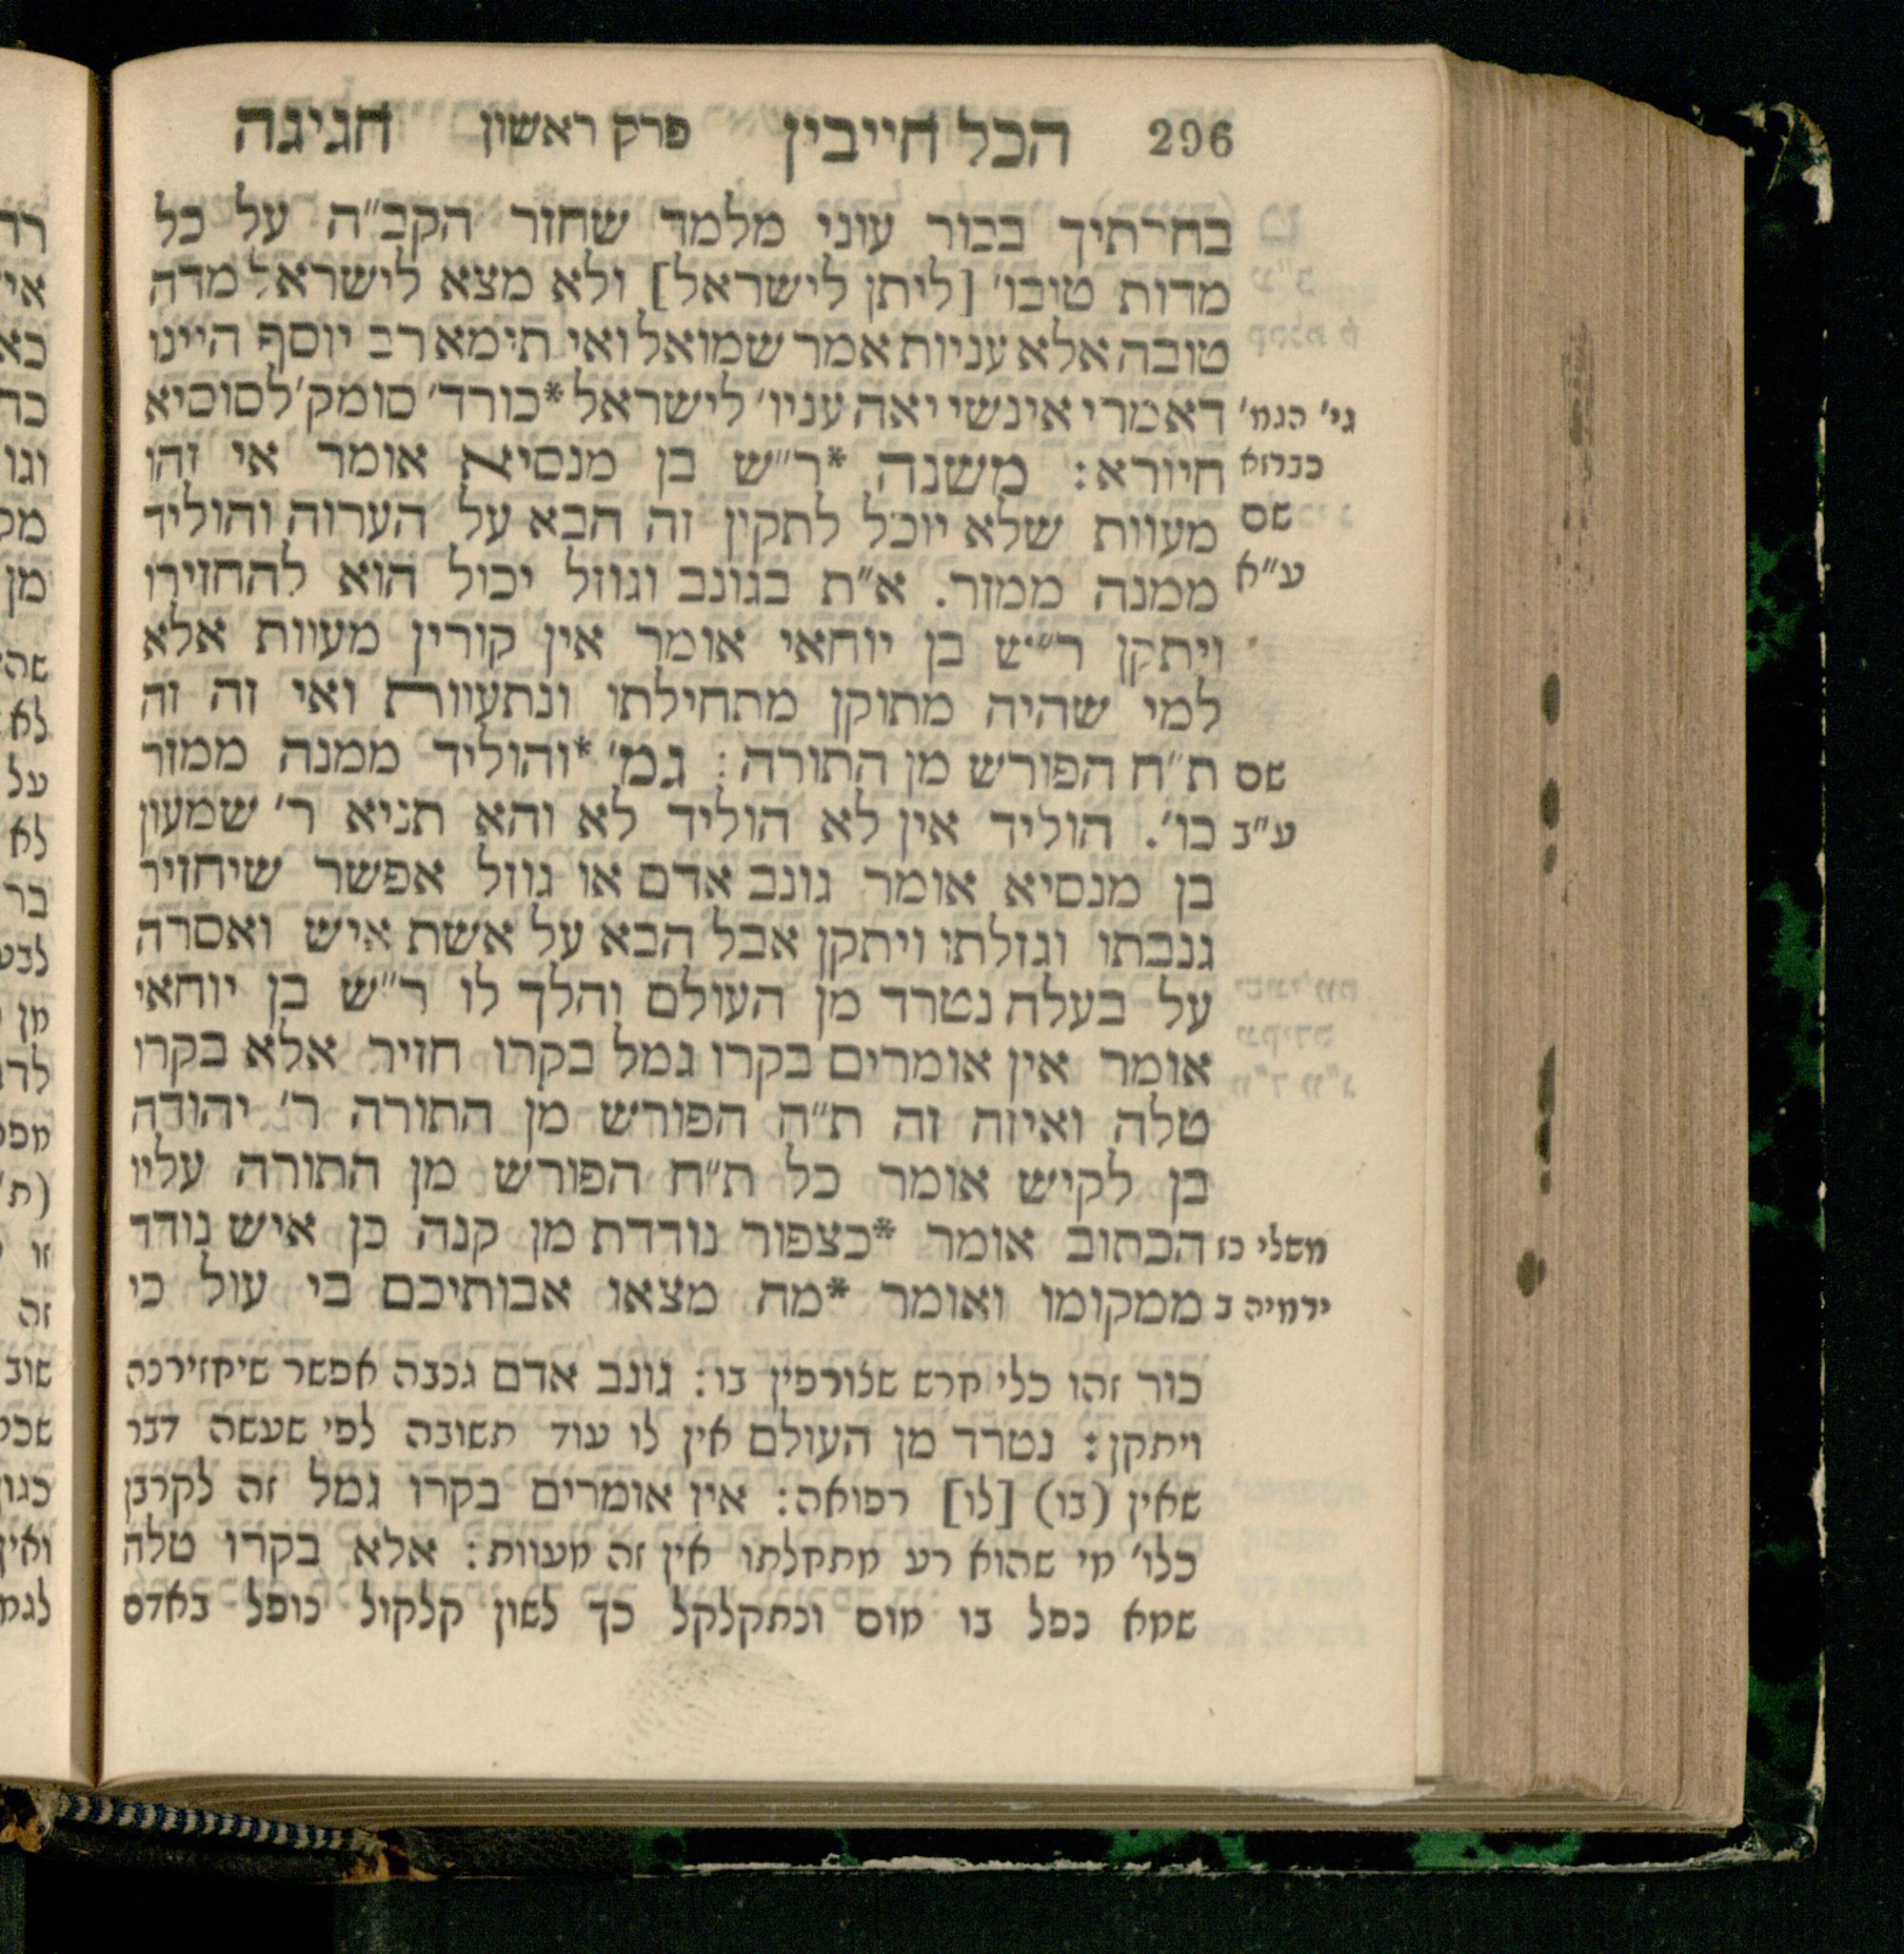 296 הכל חייבין פרק ראשון חגיגה
בחרתיך בכור עוני מלמד שחזר הקב״ה על כל
מדות טובו׳ [ליתן לישראל] ולא מצא לישראל מדה
טובה אלא עניות אמר שמואל ואי תימא רב יוסף היינו
גי׳ הגמ׳ דאמרי אינשי יאה עניו׳ לישראל *כורד׳ סומק׳ לסוסיא
כברזא חיורא: משנה *ר״ש בן מנסיא אומר אי זהו
שם מעוות שלא יוכל לתקין זה הבא על הערוה והוליד
ע״א ממנה ממזר. א״ת בגונב וגוזל יכול הוא להחזירו
ויתקן ר״ש בן יוחאי אומר אין קורין מעוות אלא
למי שהיה מתוקן מתחילתו ונתעוות ואי זה זה
שם ת״ח הפורש מן התורה: גמ׳ *והוליד ממנה ממזר
ע״ב כו׳. הוליד אין לא הוליד לא והא תניא ר׳ שמעון
בן מנסיא אומר גונב אדם או גוזל אפשר שיחזיר
גנבתו וגזלתו ויתקן אבל הבא על אשת איש ואסרה
על בעלה נטרד מן העולם והלך לו ר״ש בן יוחאי
אומר אין אומרים בקרו גמל בקרו חזיר אלא בקרו
טלה ואיזה זה ת״ח הפורש מן התורה ר׳ יהודה
בן לקיש אומר כל ת״ח הפורש מן התורה עליו
משלי כז הכתוב אומר *כצפור נודדת מן קנה כן איש נודד
ירמיה ב ממקומו ואומר *מה מצאו אבותיכם בי עול כי
כור זהו כלי חרש שצורפין בו: גונב אדם גנבה אפשר שיחזירנה
ויתקן: נטרד מן העולם אין לו עוד תשובה לפי שעשה דבר
שאין (בו) [לו] רפואה: אין אומרים בקרו גמל זה לקרבן
כלו׳ מי שהוא רע מתחלתו אין זה מעוות: אלא בקרו טלה
שמא נפל בו מום ונתקלקל כך לשון קלקול נופל באדם